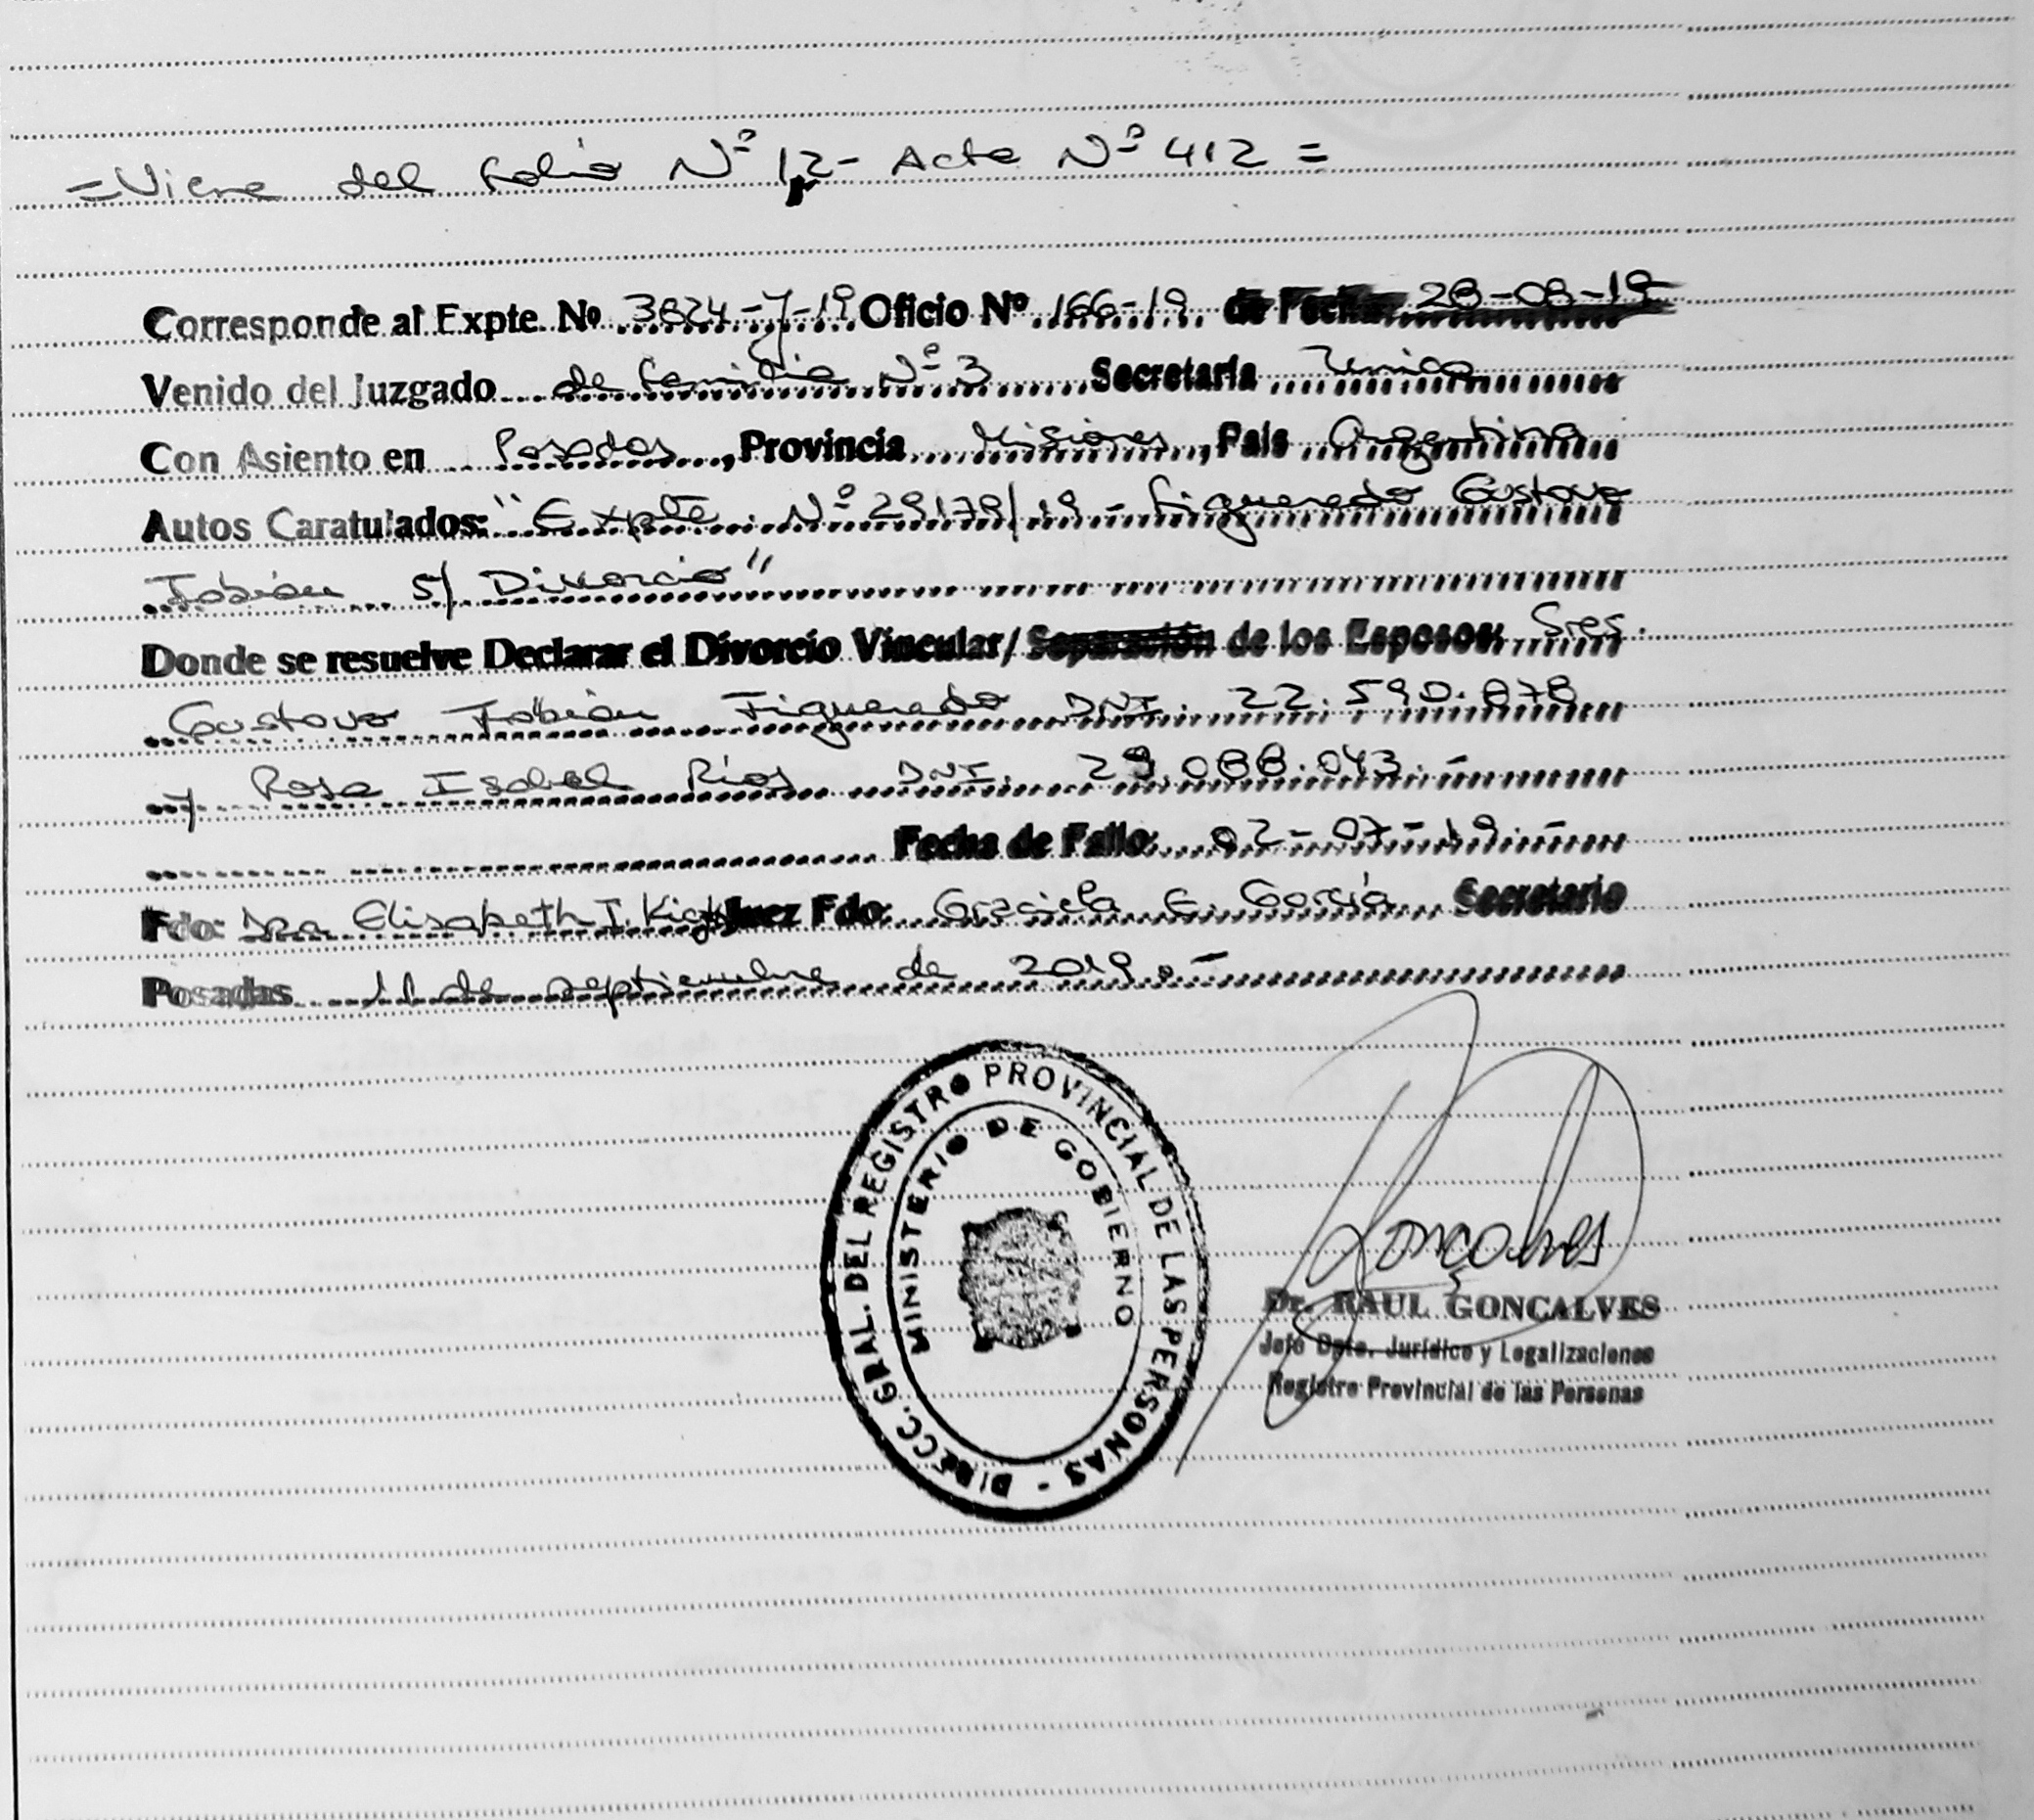 =Viene del folio Nº 12- Acta Nº 412=
Corresponde al Expte. Nº 3824-7-19 Oficio Nº 166-19 de Fecha 28-08-19
Venido del Juzgado de familia Nº 3 Secretaría Unica
Con Asiento en Posadas, Provincia Misiones, País Argentina
Autos Caratulados: "Expte. Nº 29179/19 - Figueredo Gustavo
Fabián S/ Divorcio"
Donde se resuelve Declarar el Divorcio Vincular/ Separación de los Esposos: Sres.
Gustavo Fabián Figueredo DNI. 22.590.878
y Rosa Isabel Ríos DNI. 29.088.043.-
Fecha de Fallo: 02-07-19.-
Fdo: Dra Elisabeth I. Juez Fdo: Graciela E. García Secretario
Posadas 11 de septiembre de 2019.-
DIRECC. GRAL. DEL REGISTRO PROVINCIAL DE LAS PERSONAS -
MINISTERIO DE GOBIERNO
Gonçalves
Dr. RAUL GONCALVES
Jefe Dpto. Jurídico y Legalizaciones
Registro Provincial de las Personas